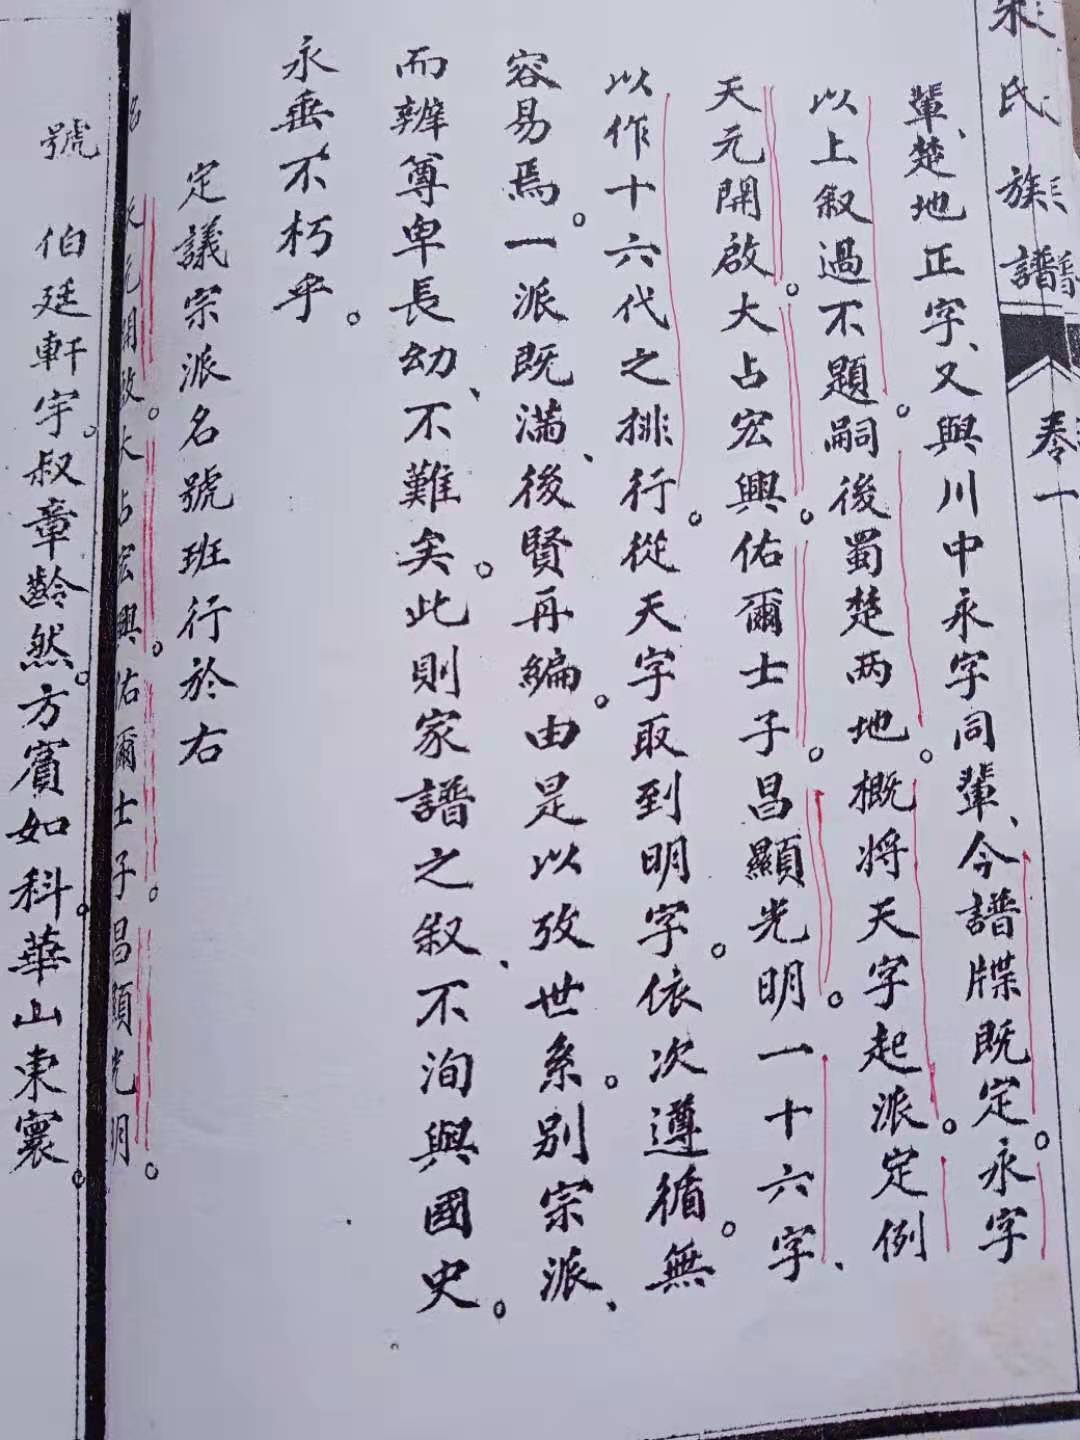 氏族譜
卷一
輩、楚地正字、又與川中永字同輩、今譜牒既定。永字
以上叙過不題。嗣後蜀楚两地。概将天字起派。定例
天元開啟。大占宏興。佑爾士子。昌顯光明。一十六字、
以作十六代之排行。從天字取到明字。依次遵循。無
容易焉。一派既满、後賢再編。由是以攷世系。别宗派、
而辨尊卑長幼、不難矣。此則家譜之叙、不洵與國史。
永垂不朽乎。
定議宗派名號班行於右
元開啟。大占宏興。佑爾士子。昌顯光明。
號 伯廷軒宇。叔章齡然。方賓如科。華山東寰。